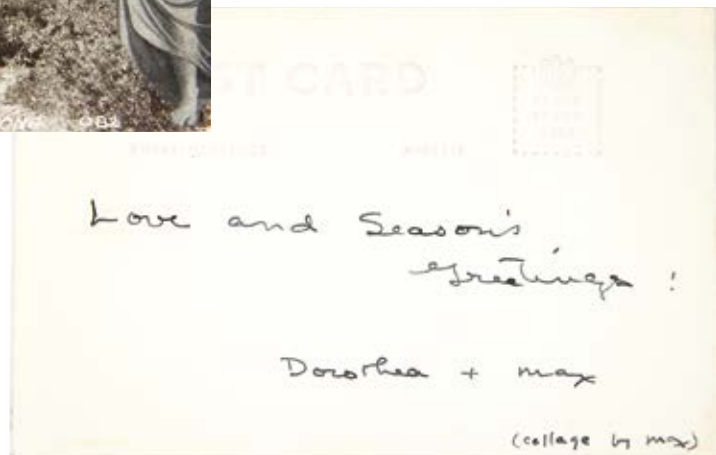 ST CARD
Love and Season's
Greetings !
Dorothea + max
(collage by max)